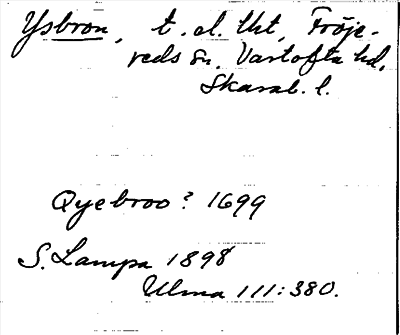 Ysbron, t. ol. Ukt, Fröje-
reds sn. Vartofta hd.
Skarab. l.
Qyebroo? 1699
S. Lampa 1898
Ulma 111:380.